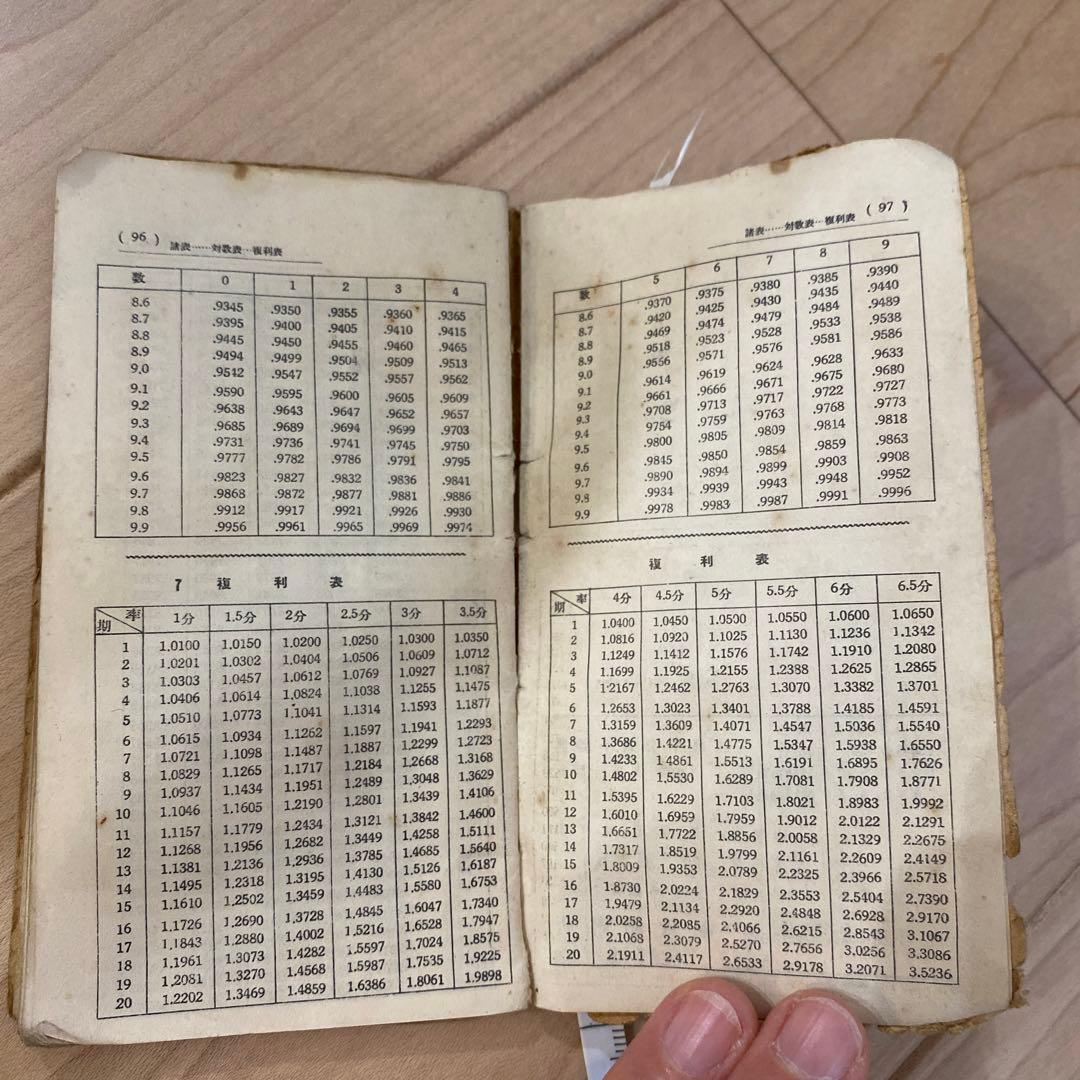 ( 96 ) 諸表……対数表…複利表
数 0 1 2 3 4
8.6 .9345 .9350 .9355 .9360 .9365
8.7 .9395 .9400 .9405 .9410 .9415
8.8 .9445 .9450 .9455 .9460 .9465
8.9 .9494 .9499 .9504 .9509 .9513
9.0 .9542 .9547 .9552 .9557 .9562
9.1 .9590 .9595 .9600 .9605 .9609
9.2 .9638 .9643 .9647 .9652 .9657
9.3 .9685 .9689 .9694 .9699 .9703
9.4 .9731 .9736 .9741 .9745 .9750
9.5 .9777 .9782 .9786 .9791 .9795
9.6 .9823 .9827 .9832 .9836 .9841
9.7 .9868 .9872 .9877 .9881 .9886
9.8 .9912 .9917 .9921 .9926 .9930
9.9 .9956 .9961 .9965 .9969 .9974
7 複利表
期 率 1分 1.5分 2分 2.5分 3分 3.5分
1 1.0100 1.0150 1.0200 1.0250 1.0300 1.0350
2 1.0201 1.0302 1.0404 1.0506 1.0609 1.0712
3 1.0303 1.0457 1.0612 1.0769 1.0927 1.1087
4 1.0406 1.0614 1.0824 1.1038 1.1255 1.1475
5 1.0510 1.0773 1.1041 1.1314 1.1593 1.1877
6 1.0615 1.0934 1.1262 1.1597 1.1941 1.2293
7 1.0721 1.1098 1.1487 1.1887 1.2299 1.2723
8 1.0829 1.1265 1.1717 1.2184 1.2668 1.3168
9 1.0937 1.1434 1.1951 1.2489 1.3048 1.3629
10 1.1046 1.1605 1.2190 1.2801 1.3439 1.4106
11 1.1157 1.1779 1.2434 1.3121 1.3842 1.4600
12 1.1268 1.1956 1.2682 1.3449 1.4258 1.5111
13 1.1381 1.2136 1.2936 1.3785 1.4685 1.5640
14 1.1495 1.2318 1.3195 1.4130 1.5126 1.6187
15 1.1610 1.2502 1.3459 1.4483 1.5580 1.6753
16 1.1726 1.2690 1.3728 1.4845 1.6047 1.7340
17 1.1843 1.2880 1.4002 1.5216 1.6528 1.7947
18 1.1961 1.3073 1.4282 1.5597 1.7024 1.8575
19 1.2081 1.3270 1.4568 1.5987 1.7535 1.9225
20 1.2202 1.3469 1.4859 1.6386 1.8061 1.9898
諸表……対数表…複利表 ( 97 )
数 5 6 7 8 9
8.6 .9370 .9375 .9380 .9385 .9390
8.7 .9420 .9425 .9430 .9435 .9440
8.8 .9469 .9474 .9479 .9484 .9489
8.9 .9518 .9523 .9528 .9533 .9538
9.0 .9556 .9571 .9576 .9581 .9586
9.1 .9614 .9619 .9624 .9628 .9633
9.2 .9661 .9666 .9671 .9675 .9680
9.3 .9708 .9713 .9717 .9722 .9727
9.4 .9754 .9759 .9763 .9768 .9773
9.5 .9800 .9805 .9809 .9814 .9818
9.6 .9845 .9850 .9854 .9859 .9863
9.7 .9890 .9894 .9899 .9903 .9908
9.8 .9934 .9939 .9943 .9948 .9952
9.9 .9978 .9983 .9987 .9991 .9996
複利表
期 率 4分 4.5分 5分 5.5分 6分 6.5分
1 1.0400 1.0450 1.0500 1.0550 1.0600 1.0650
2 1.0816 1.0920 1.1025 1.1130 1.1236 1.1342
3 1.1249 1.1412 1.1576 1.1742 1.1910 1.2080
4 1.1699 1.1925 1.2155 1.2388 1.2625 1.2865
5 1.2167 1.2462 1.2763 1.3070 1.3382 1.3701
6 1.2653 1.3023 1.3401 1.3788 1.4185 1.4591
7 1.3159 1.3609 1.4071 1.4547 1.5036 1.5540
8 1.3686 1.4221 1.4775 1.5347 1.5938 1.6550
9 1.4233 1.4861 1.5513 1.6191 1.6895 1.7626
10 1.4802 1.5530 1.6289 1.7081 1.7908 1.8771
11 1.5395 1.6229 1.7103 1.8021 1.8983 1.9992
12 1.6010 1.6959 1.7959 1.9012 2.0122 2.1291
13 1.6651 1.7722 1.8856 2.0058 2.1329 2.2675
14 1.7317 1.8519 1.9799 2.1161 2.2609 2.4149
15 1.8009 1.9353 2.0789 2.2325 2.3966 2.5718
16 1.8730 2.0224 2.1829 2.3553 2.5404 2.7390
17 1.9479 2.1134 2.2920 2.4848 2.6928 2.9170
18 2.0258 2.2085 2.4066 2.6215 2.8543 3.1067
19 2.1068 2.3079 2.5270 2.7656 3.0256 3.3086
20 2.1911 2.4117 2.6533 2.9178 3.2071 3.5236